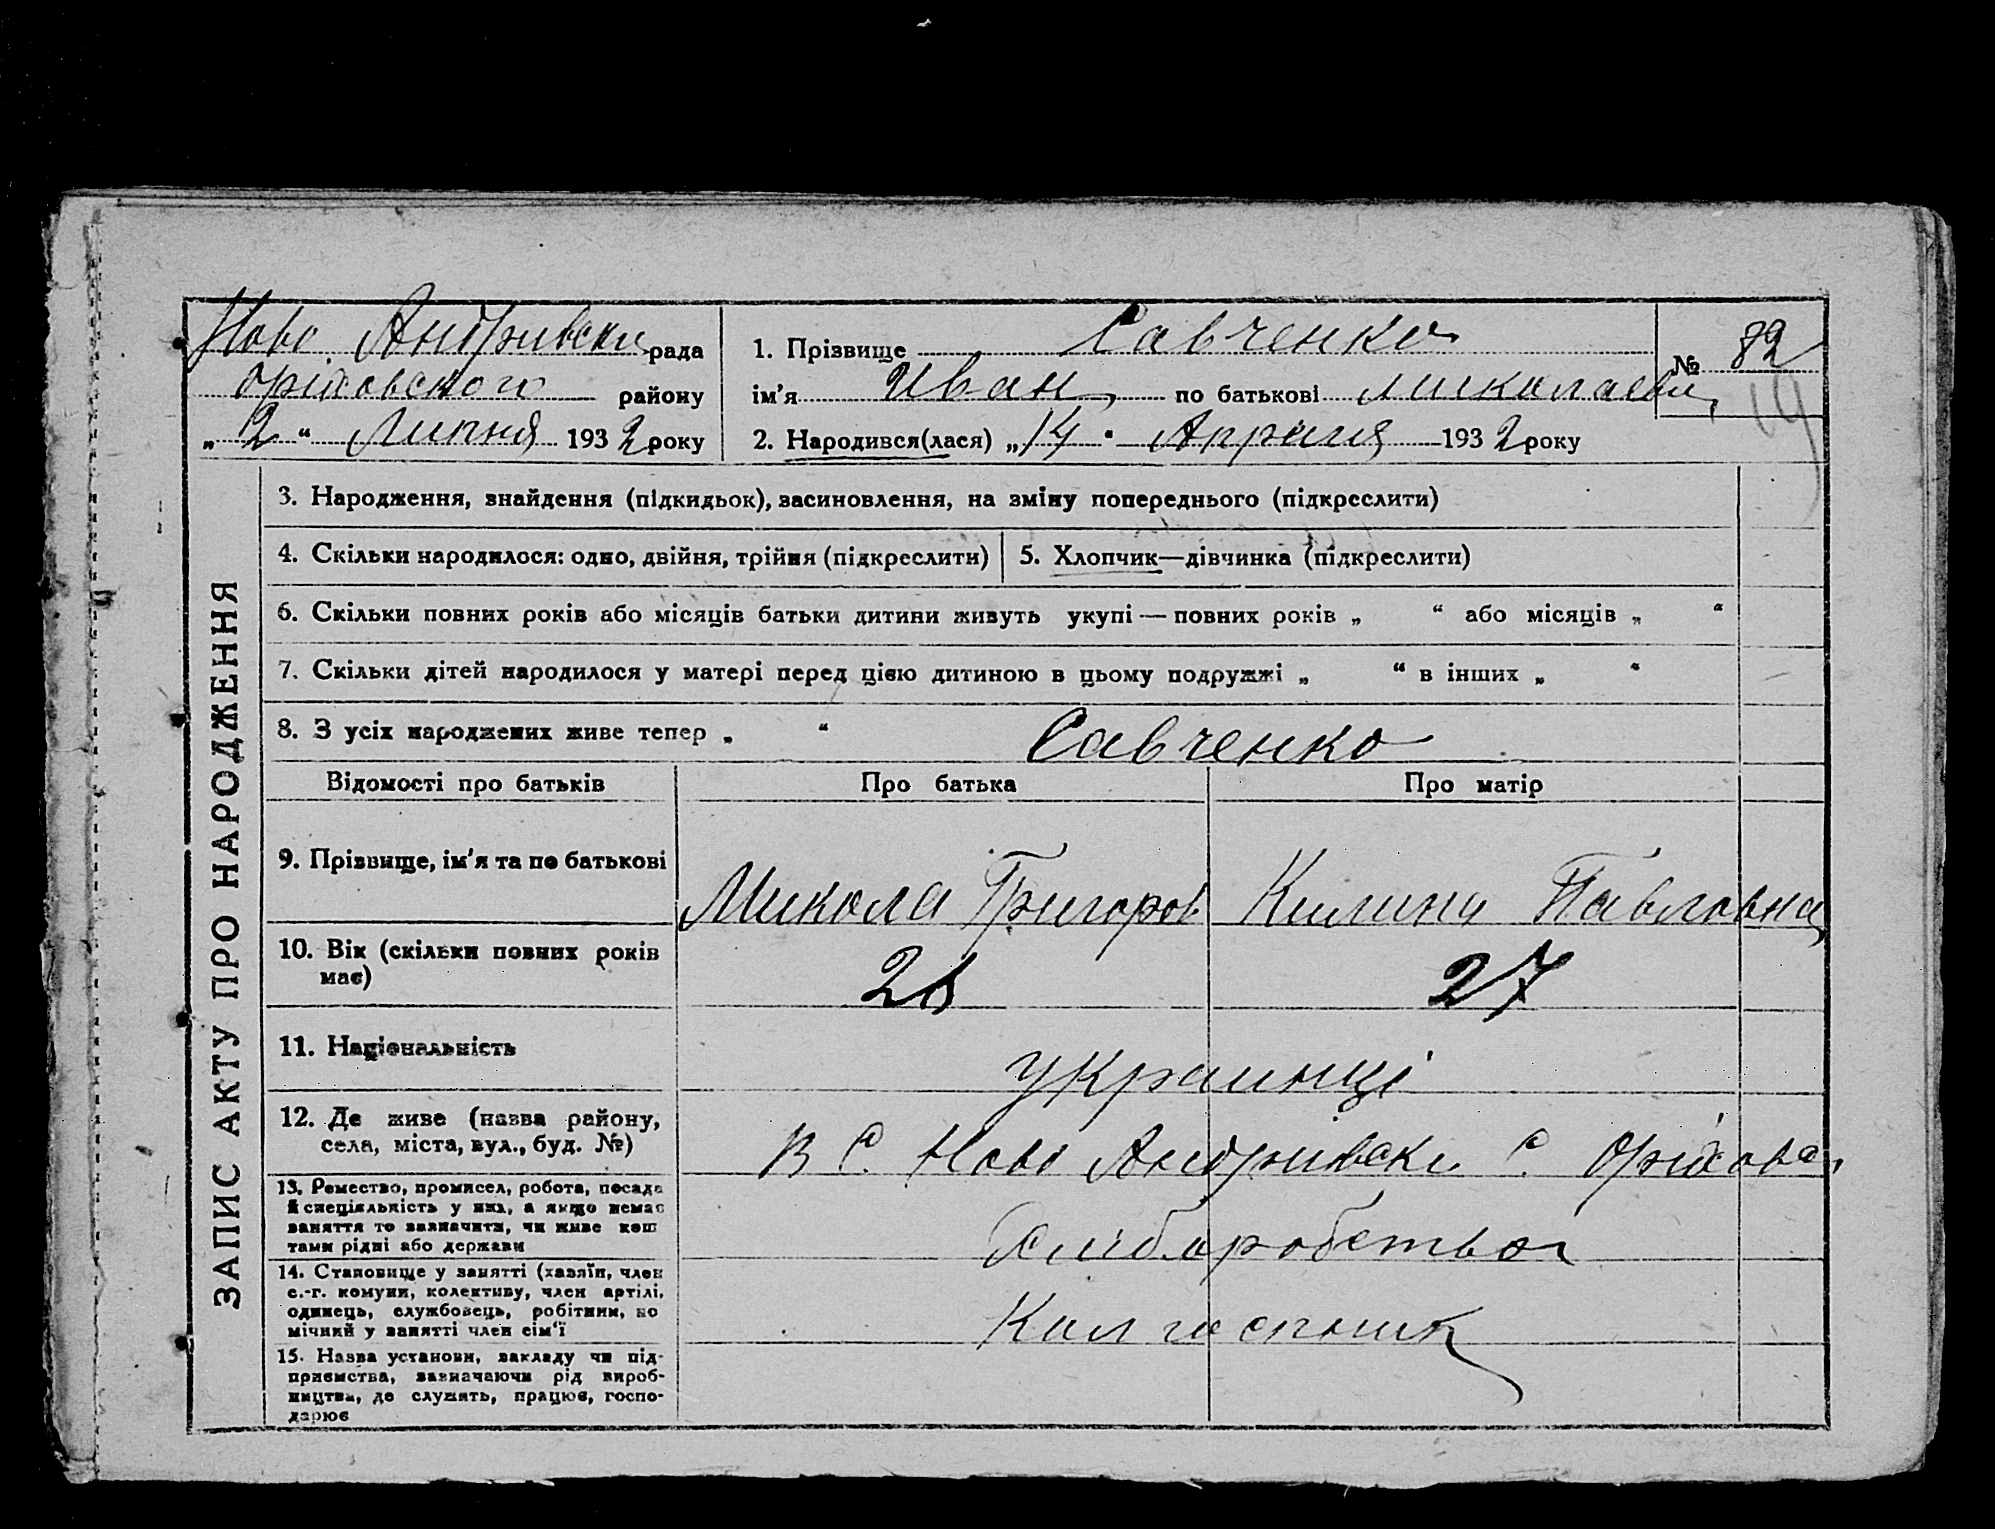 Ново Андривськи рада
оріховського району
„ 2 “ Липня 1932 року
1. Прізвище Савченко
ім'я Иван по батькові Миколаеви,
№ 82
19
2. Народився(лася) „ 14 “ Апреля 1932 року
ЗАПИС АКТУ ПРО НАРОДЖЕННЯ
3. Народження, знайдення (підкидьок), засиновлення, на зміну попереднього (підкреслити)
4. Скільки народилося: одно, двійня, трійня (підкреслити)
5. Хлопчик—дівчинка (підкреслити)
6. Скільки повних років або місяців батьки дитини живуть укупі — повних років „ “ або місяців „ “
7. Скільки дітей народилося у матері перед цією дитиною в цьому подружжі „ “ в інших „ “
8. З усіх народжених живе тепер „ “
Савченко
Відомості про батьків
Про батька
Про матір
9. Прізвище, ім'я та по батькові
Микола Григоров
Килина Павловна
10. Вік (скільки повних років
має)
27
11. Національність
украинці
12. Де живе (назва району,
села, міста, вул., буд. №)
В С. Ново Андривськи С. Оріхова,
13. Ремество, промисел, робота, посада
й спеціяльність у них, а якщо немає
заняття то зазначити, чи живе кош
тами рідні або держави
Хліборобство
14. Становище у занятті (хазяїн, член
с.-г. комуни, колективу, член артілі,
одинець, службовець, робітник, по
мічний у занятті член сім'ї
Колгоспник
15. Назва установи, закладу чи під-
приємства, зазначаючи рід вироб-
ництва, де служить, працює, госпо-
дарює